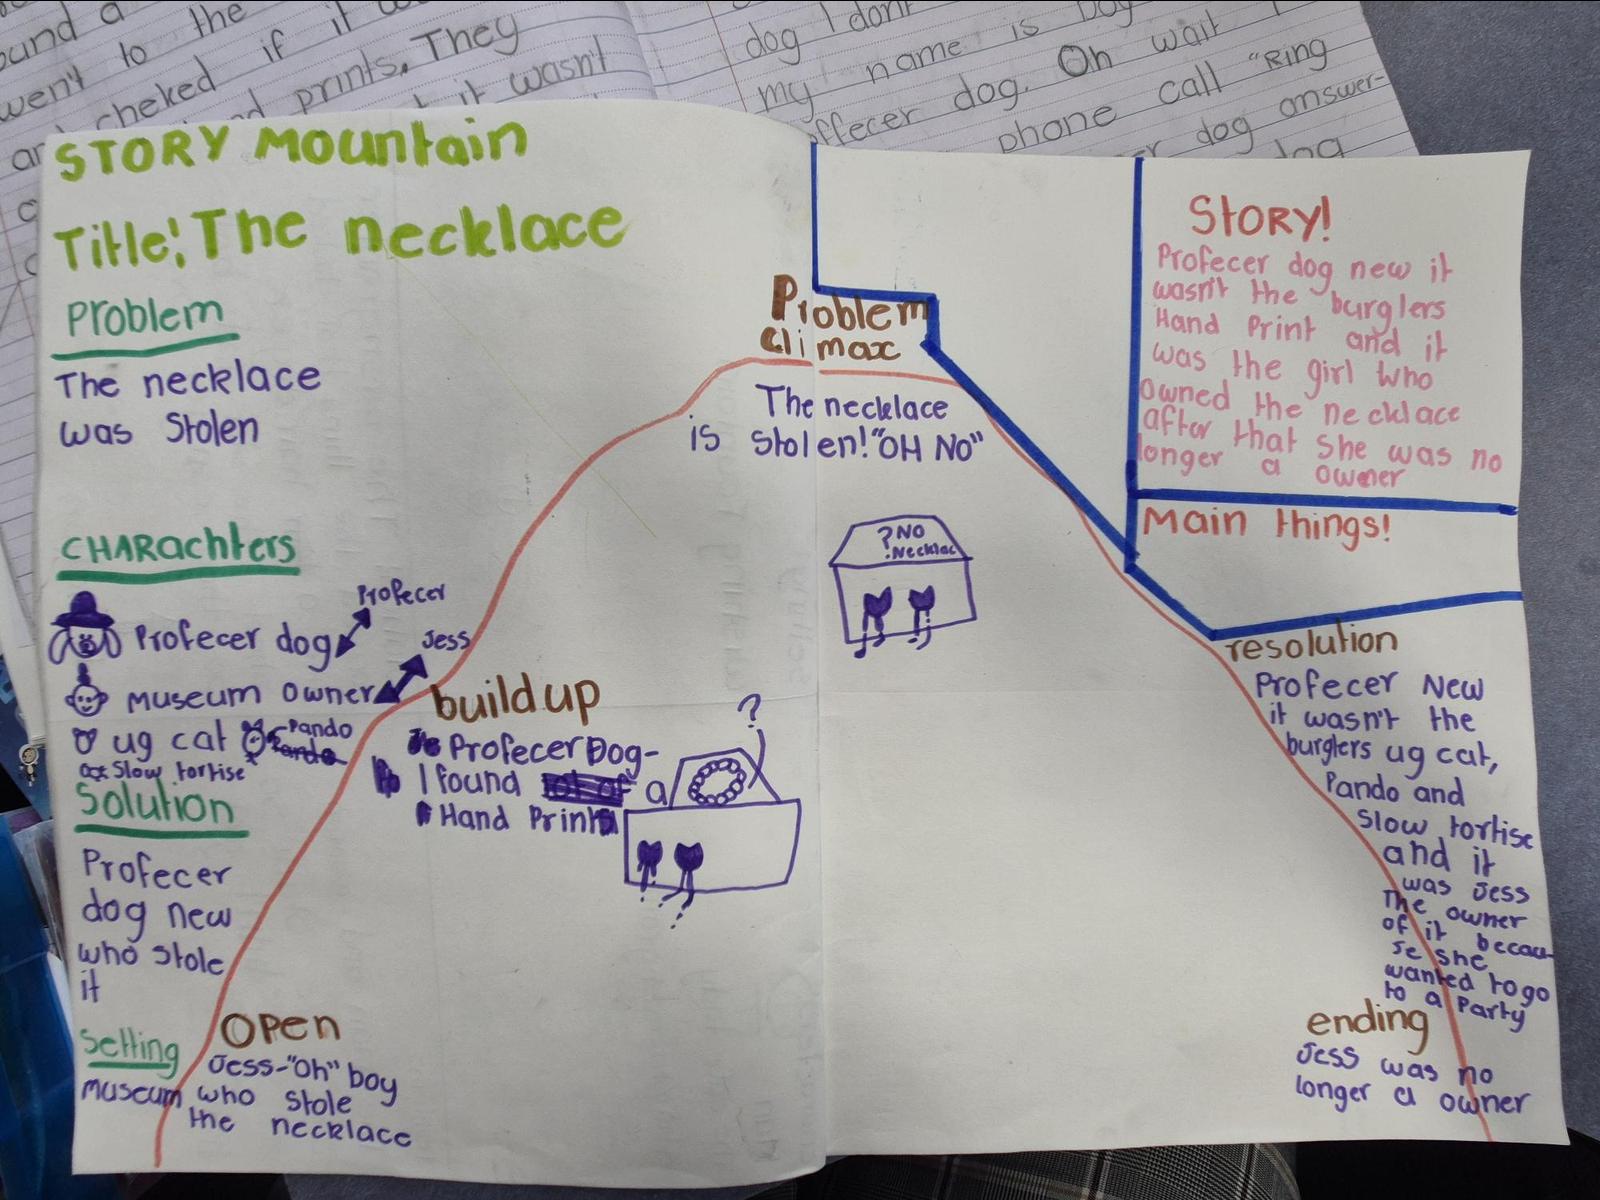 ound a
went to the
cheked if it
prints. They
it wasn't
dog I don't
my name is
offecer dog. Oh wait I
phone call "Ring
dog answer-
STORY Mountain
Title: The necklace
Problem
The necklace
was Stolen
CHARachters
Profecer dog
Profecer
museum owner
Jess
ug cat
Pando
Slow tortise
Solution
Profecer
dog new
who stole
it
Setting
museum
Open
Jess-"Oh" boy
who stole
the necklace
build up
Profecer Dog-
I found a
Hand Print
?
Problem
climax
The necklace
is stolen! "OH NO"
?NO
Necklac
STORY!
Profecer dog new it
wasn't the burglers
Hand Print and it
was the girl who
owned the necklace
after that she was no
longer a owner
Main things!
resolution
Profecer New
it wasn't the
burglers ug cat,
Pando and
Slow tortise
and it
was Jess
The owner
of it becau-
se she
wanted to go
to a Party
ending
Jess was no
longer a owner